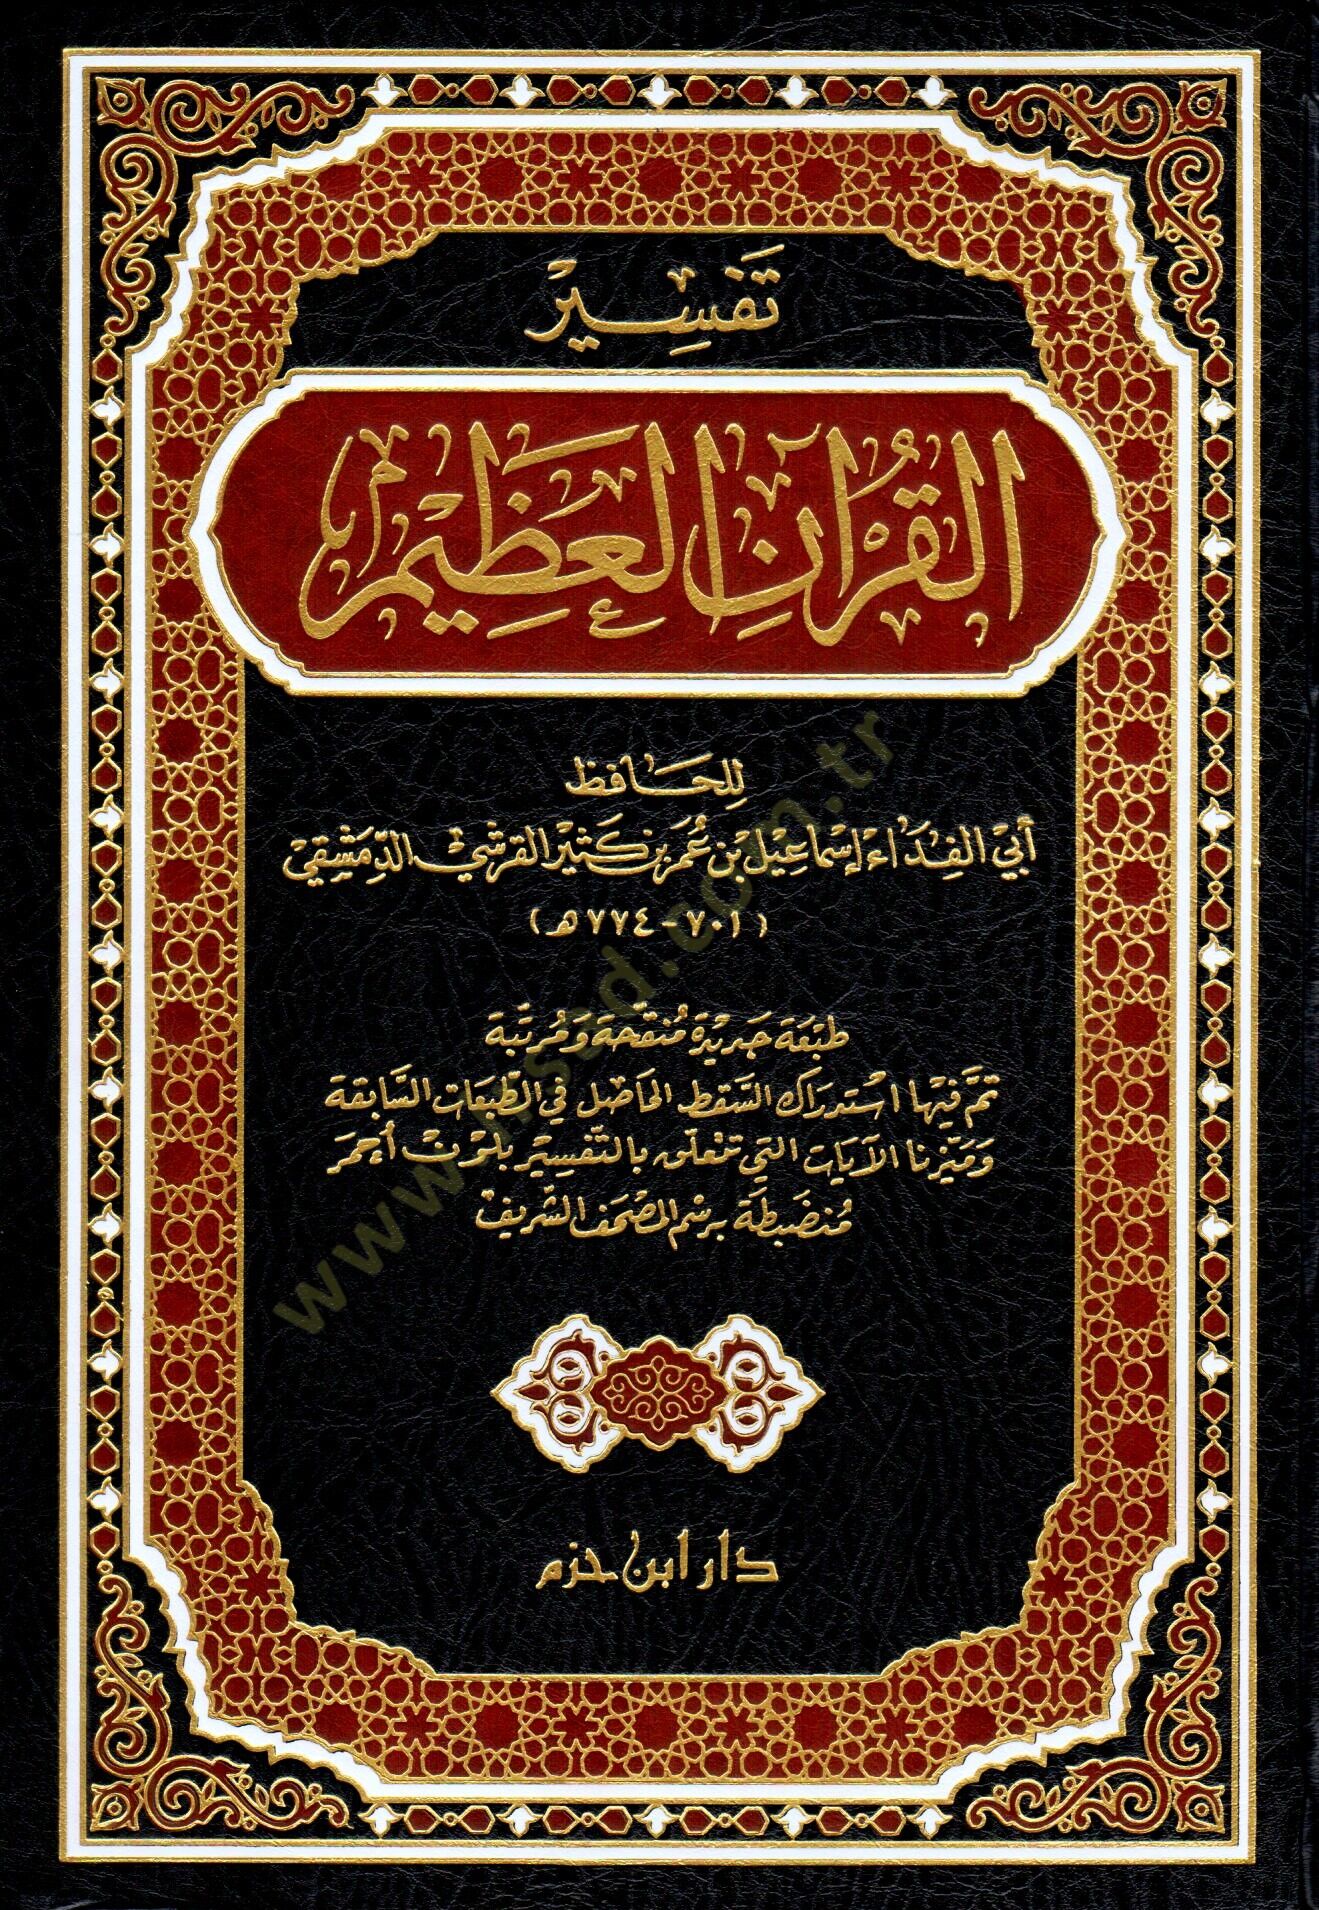 تَفسِير
القُرآنِ العَظِيم
لِلحَافِظ
أبي الفِدَاء إسماعيل بن عُمَر بن كَثير القرشي الدِّمَشقي
(٧٠١-٧٧٤هـ)
طبْعَة جديدة مُنقّحة وَمُرتّبة
تمّ فيها استدراك السَّقط الحَاصل في الطّبعات السَّابقة
وَميّزنا الآيات التي تتعلّق بالتّفسِير بلون أحمَر
مُنضَبطَة برسم المصْحَف الشّريف
دار ابن حزم
www.nsad.com.tr